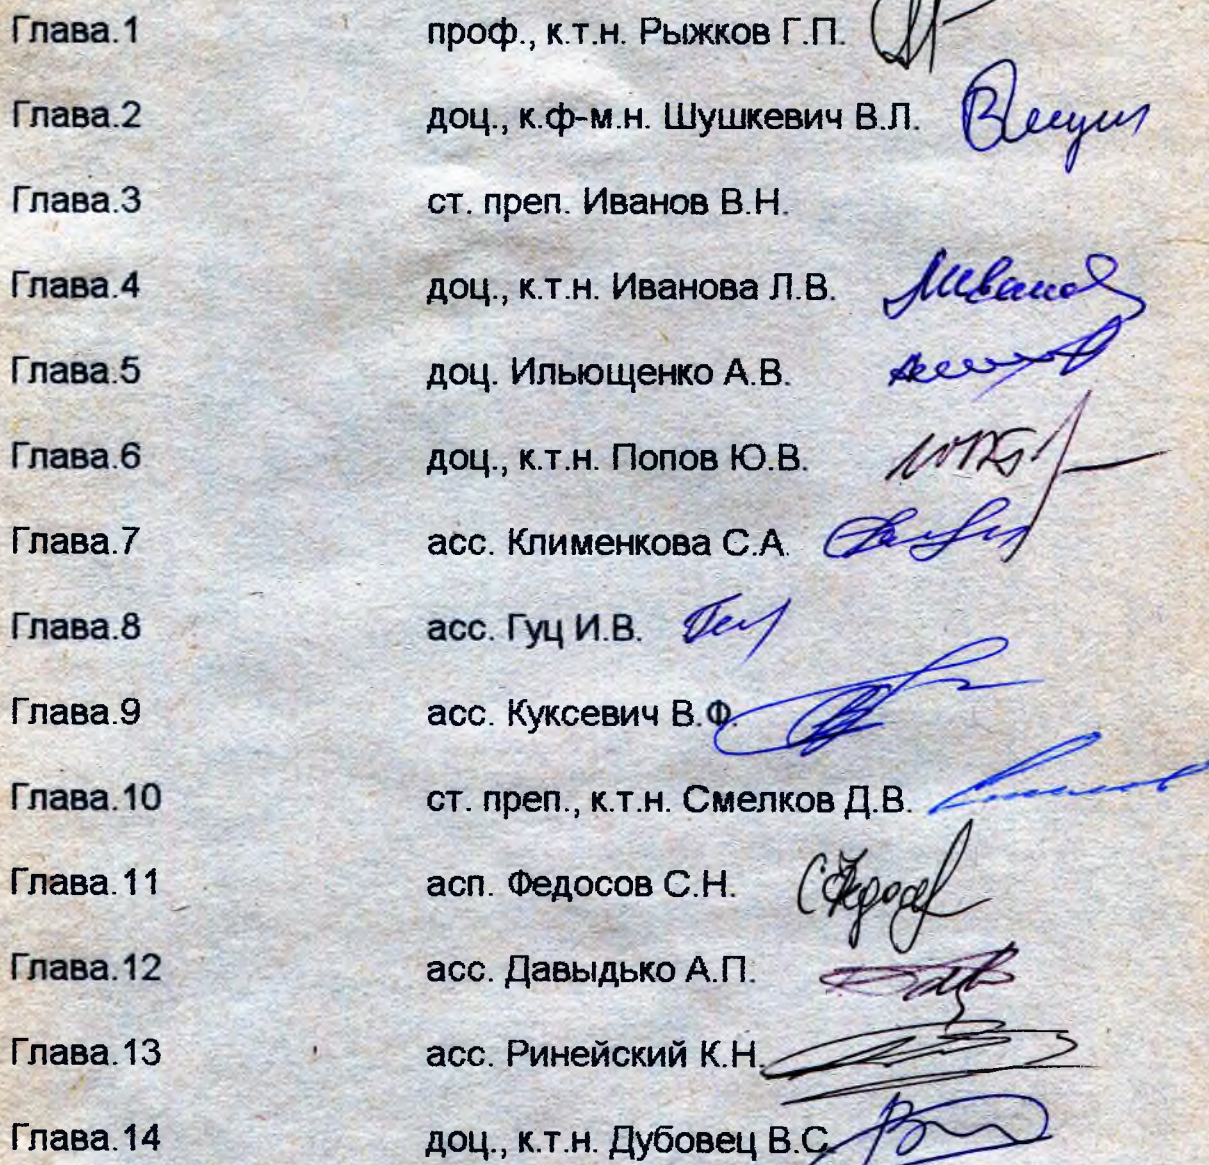 Глава.1 проф., к.т.н. Рыжков Г.П.
Глава.2 доц., к.ф-м.н. Шушкевич В.Л.
Глава.3 ст. преп. Иванов В.Н.
Глава.4 доц., к.т.н. Иванова Л.В.
Глава.5 доц. Ильющенко А.В.
Глава.6 доц., к.т.н. Попов Ю.В.
Глава.7 асс. Клименкова С.А.
Глава.8 асс. Гуц И.В.
Глава.9 асс. Куксевич В.Ф.
Глава.10 ст. преп., к.т.н. Смелков Д.В.
Глава.11 асп. Федосов С.Н.
Глава.12 асс. Давыдько А.П.
Глава.13 асс. Ринейский К.Н.
Глава.14 доц., к.т.н. Дубовец В.С